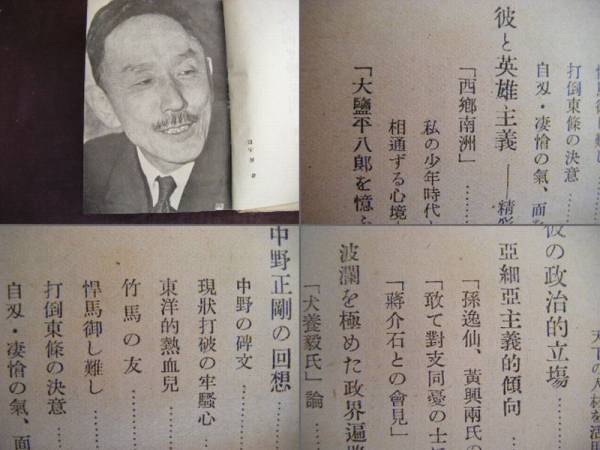 悍馬御し難し
打倒東條の決意……
自刄・凄愴の氣、面
彼と英雄主義――精彩
「西鄕南洲」……
私の少年時代
相通ずる心境
「大鹽平八郞を憶ふ
中野正剛の回想
中野の碑文……
現狀打破の牢騷心……
東洋的熱血兒……
竹馬の友……
悍馬御し難し……
打倒東條の決意……
自刄・凄愴の氣、面
天下の人材を活用
彼の政治的立場
亞細亞主義的傾向
「孫逸仙、黃興兩氏の
「敢て對支同憂の士
「蔣介石との會見」
波瀾を極めた政界遍
「犬養毅氏」論……